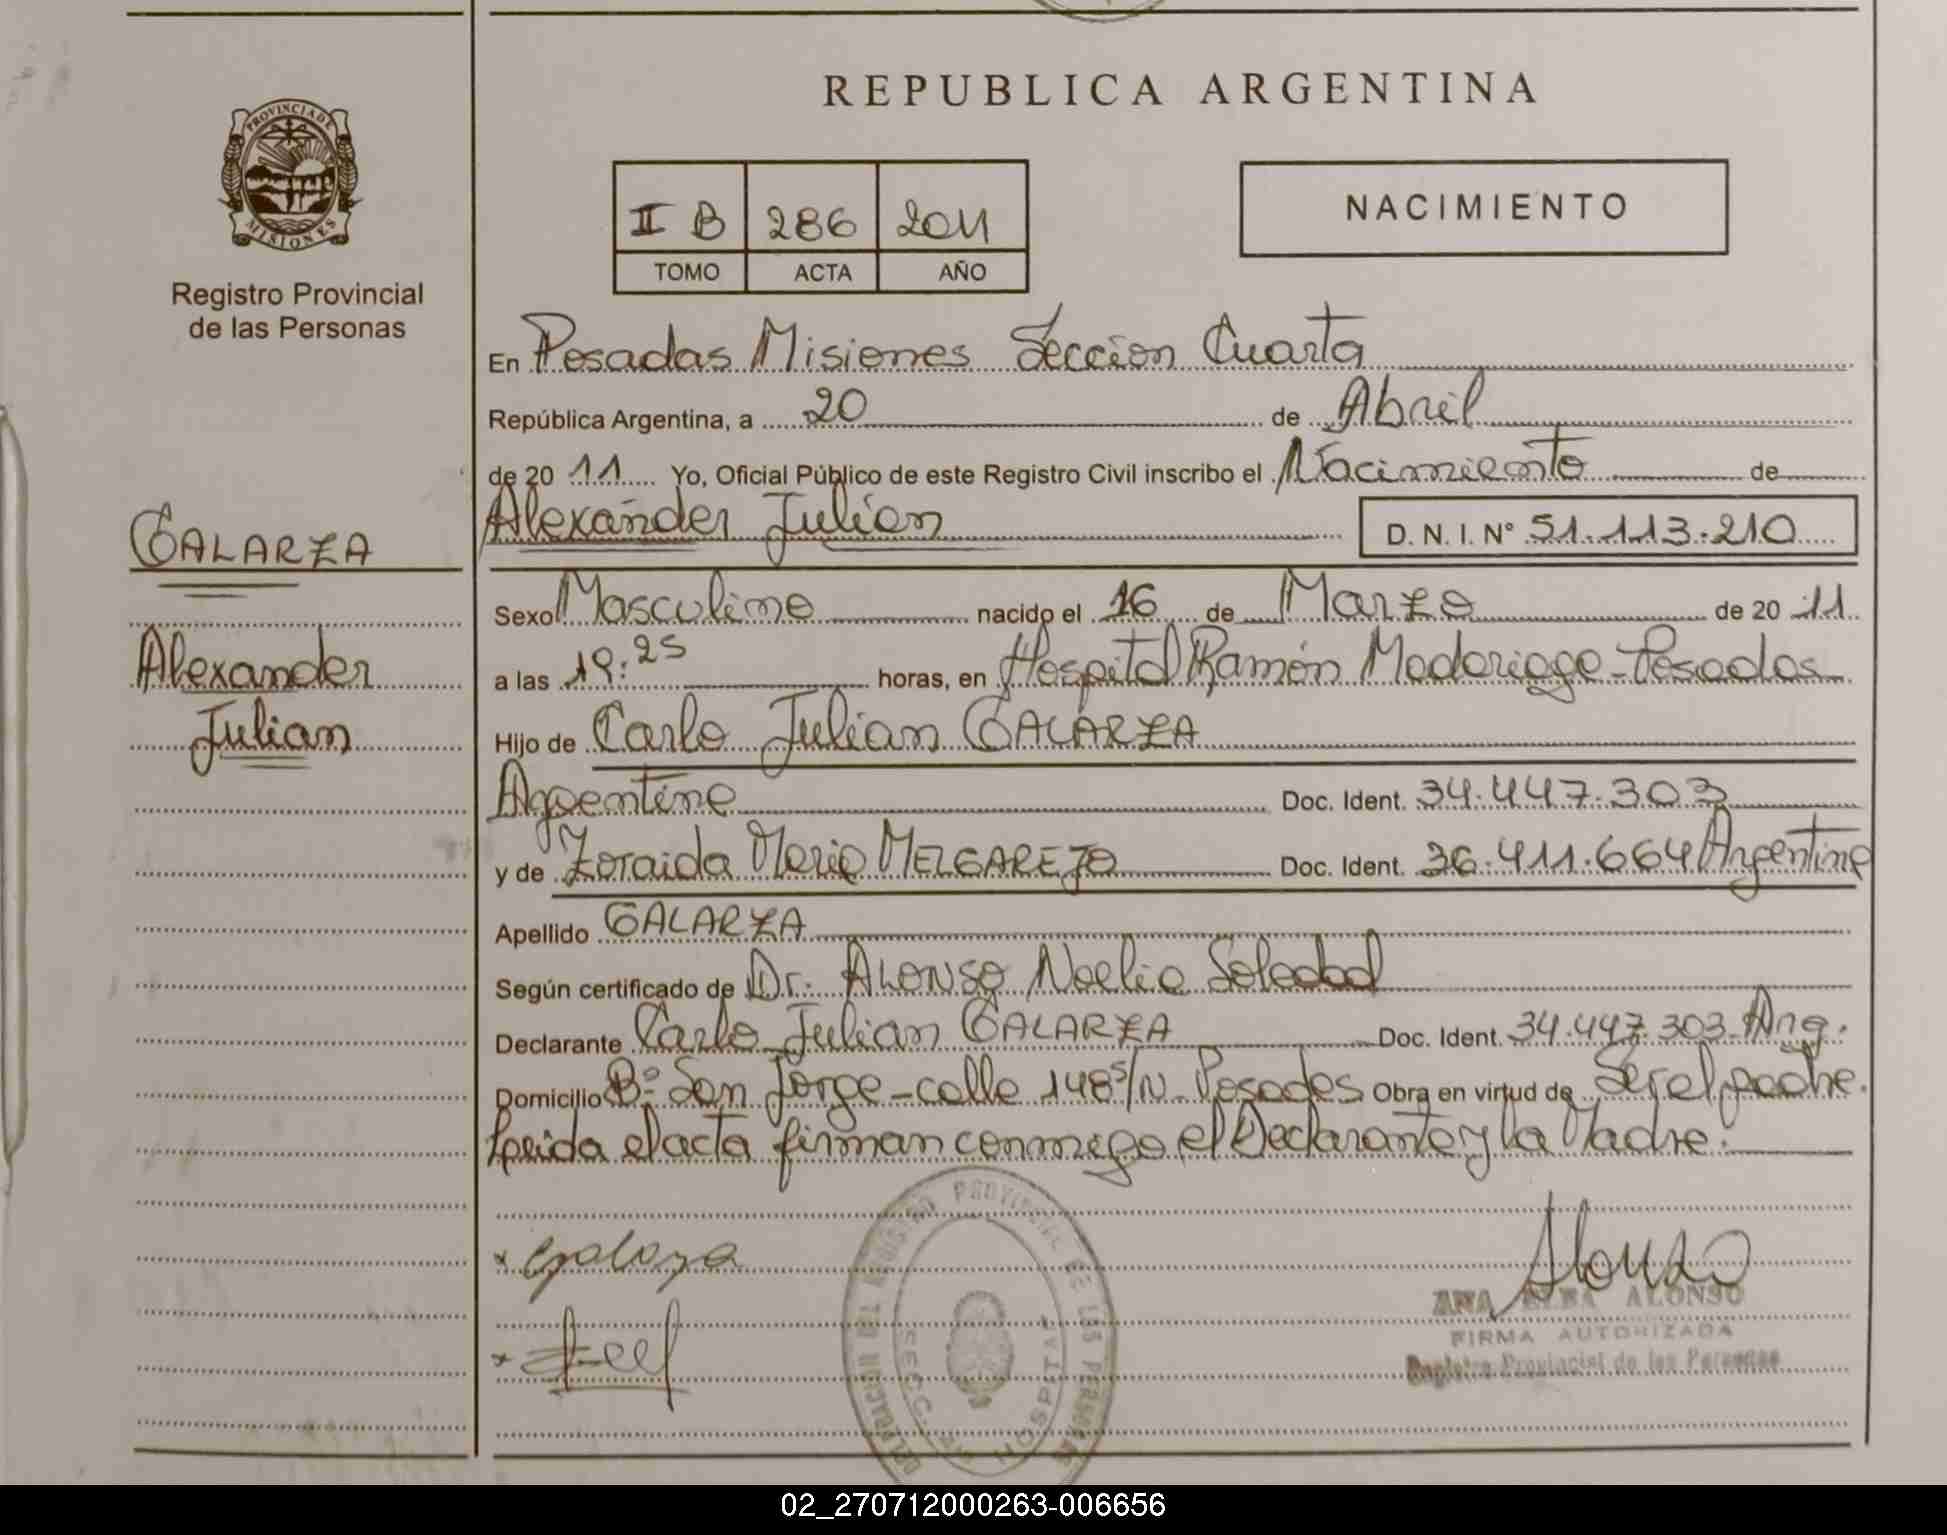 REPUBLICA ARGENTINA
PROVINCIA DE
MISIONES
Registro Provincial
de las Personas
II B 286 2011
TOMO ACTA AÑO
NACIMIENTO
En Posadas Misiones Seccion Cuarta
República Argentina, a 20 de Abril
de 20 11 Yo, Oficial Público de este Registro Civil inscribo el Nacimiento de
Alexander Julian D. N. I. N° 51.113.210
GALARZA
Alexander
Julian
Sexo Masculino nacido el 16 de Marzo de 20 11
a las 19:25 horas, en Hospital Ramón Madariaga - Posadas
Hijo de Carlo Julian GALARZA
Argentino Doc. Ident. 34.447.303
y de Zoraida Maria MELGAREJO Doc. Ident. 36.411.664 Argentina
Apellido GALARZA
Según certificado de Dr. ALONSO Noelia Soledad
Declarante Carlo Julian GALARZA Doc. Ident. 34.447.303 Arg.
Domicilio B° San Jorge - calle 148 S/N - Posadas Obra en virtud de Ser el padre.
Leida el acta firman conmigo el Declarante y la Madre.
x Galarza
x
Alonso
ANA ELBA ALONSO
FIRMA AUTORIZADA
Registro Provincial de las Personas
DEL REGISTRO PROVINCIAL DE LAS PERSONAS
SECC. HOSPITAL
02_270712000263-006656